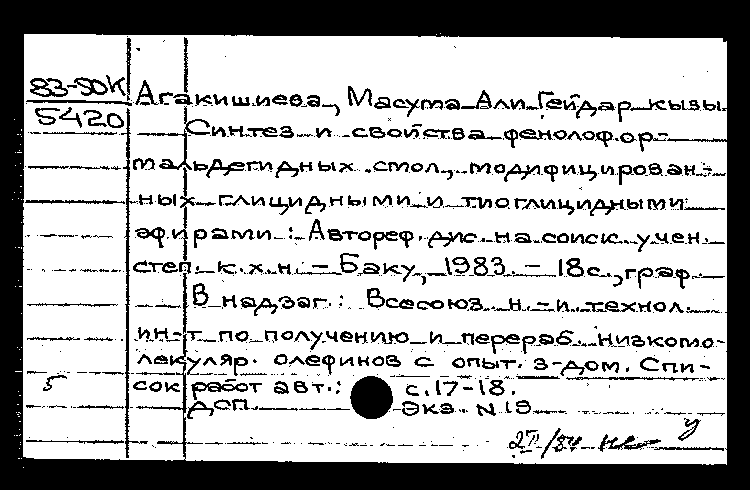 83-50К
5420
Агакишиева, Масума Али Гейдар кызы
Синтез и свойства фенолофор-
мальдегидных смол, модифицирован-
ных глицидными и тиоглицидными
эфирами : Автореф. дис. на соиск. учен.
степ. к.х.н. – Баку, 1983. – 18 с., граф
В надзаг.: Всесоюз н.-и. технол.
ин-т по получению и перераб. низкомо-
лекуляр. олефинов с опыт. з-дом. Спи-
5 сок работ авт.: с. 17-18.
ДСП. Экз. N 19
у